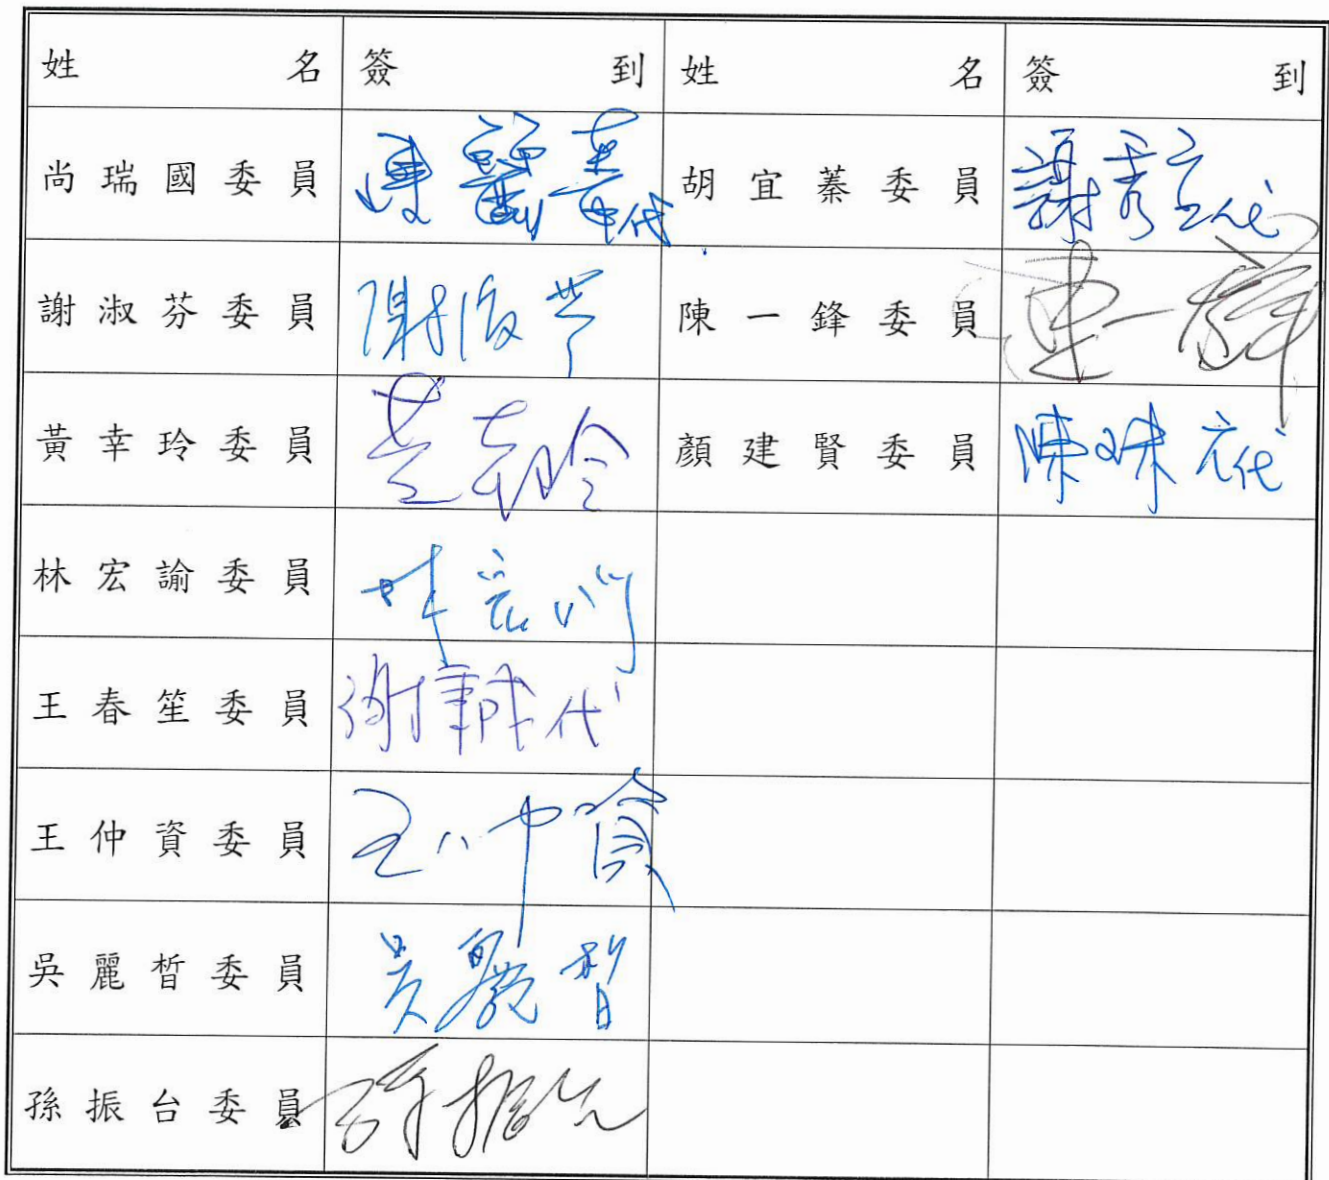 姓名 簽到 姓名 簽到
尚瑞國委員 代 胡宜蓁委員 代
謝淑芬委員 謝淑芬 陳一鋒委員 陳一鋒
黃幸玲委員 黃幸玲 顏建賢委員 代
林宏諭委員 林宏諭
王春笙委員 代
王仲資委員 王仲資
吳麗晳委員 吳麗晳
孫振台委員 孫振台